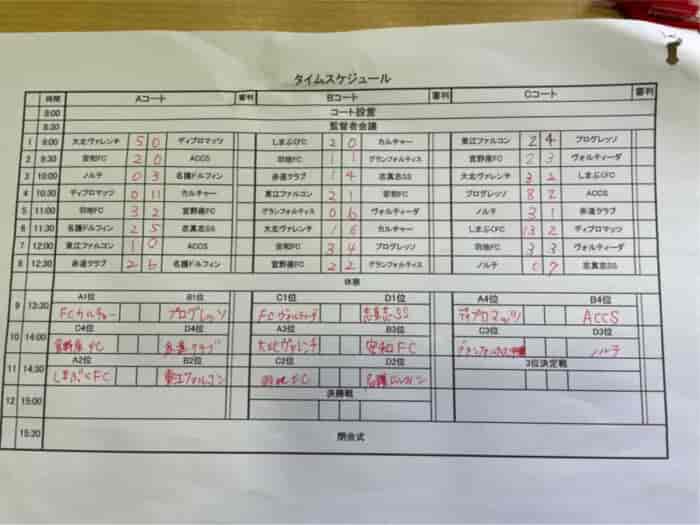 タイムスケジュール
時間 Aコート 審判 Bコート 審判 Cコート 審判
8:00 コート設営
8:30 監督者会議
1 9:00 大北ヴァレンチ 5 0 ディプロマッツ しまぶくFC 2 0 カルチャー 東江ファルコン 2 4 プログレッソ
2 9:30 安和FC 2 0 ACCS 羽地FC 1 1 グランフォルティス 宜野座FC 2 3 ヴォルティーダ
3 10:00 ノルテ 0 3 名護ドルフィン 赤道クラブ 1 4 志真志SS 大北ヴァレンチ 3 2 しまぶくFC
4 10:30 ディプロマッツ 0 11 カルチャー 東江ファルコン 2 1 安和FC プログレッソ 8 2 ACCS
5 11:00 羽地FC 3 2 宜野座FC グランフォルティス 0 6 ヴォルティーダ ノルテ 3 1 赤道クラブ
6 11:30 名護ドルフィン 2 5 志真志SS 大北ヴァレンチ 1 6 カルチャー しまぶくFC 13 2 ディプロマッツ
7 12:00 東江ファルコン 1 0 ACCS 安和FC 3 4 プログレッソ 羽地FC 3 3 ヴォルティーダ
8 12:30 赤道クラブ 2 6 名護ドルフィン 宜野座FC 2 2 グランフォルティス ノルテ 7 志真志SS
休憩
A1位 B1位 C1位 D1位 A4位 B4位
9 13:30 FCカルチャー プログレッソ FCヴォルティーダ 志真志SS ディプロマッツ ACCS
C4位 D4位 A3位 B3位 C3位 D3位
10 14:00 宜野座FC 赤道クラブ 大北ヴァレンチ 安和FC グランフォルティス ノルテ
A2位 B2位 C2位 D2位 3位決定戦
11 14:30 しまぶくFC 東江ファルコン FC 名護ドルフィン
決勝戦
12 15:00
15:30 閉会式